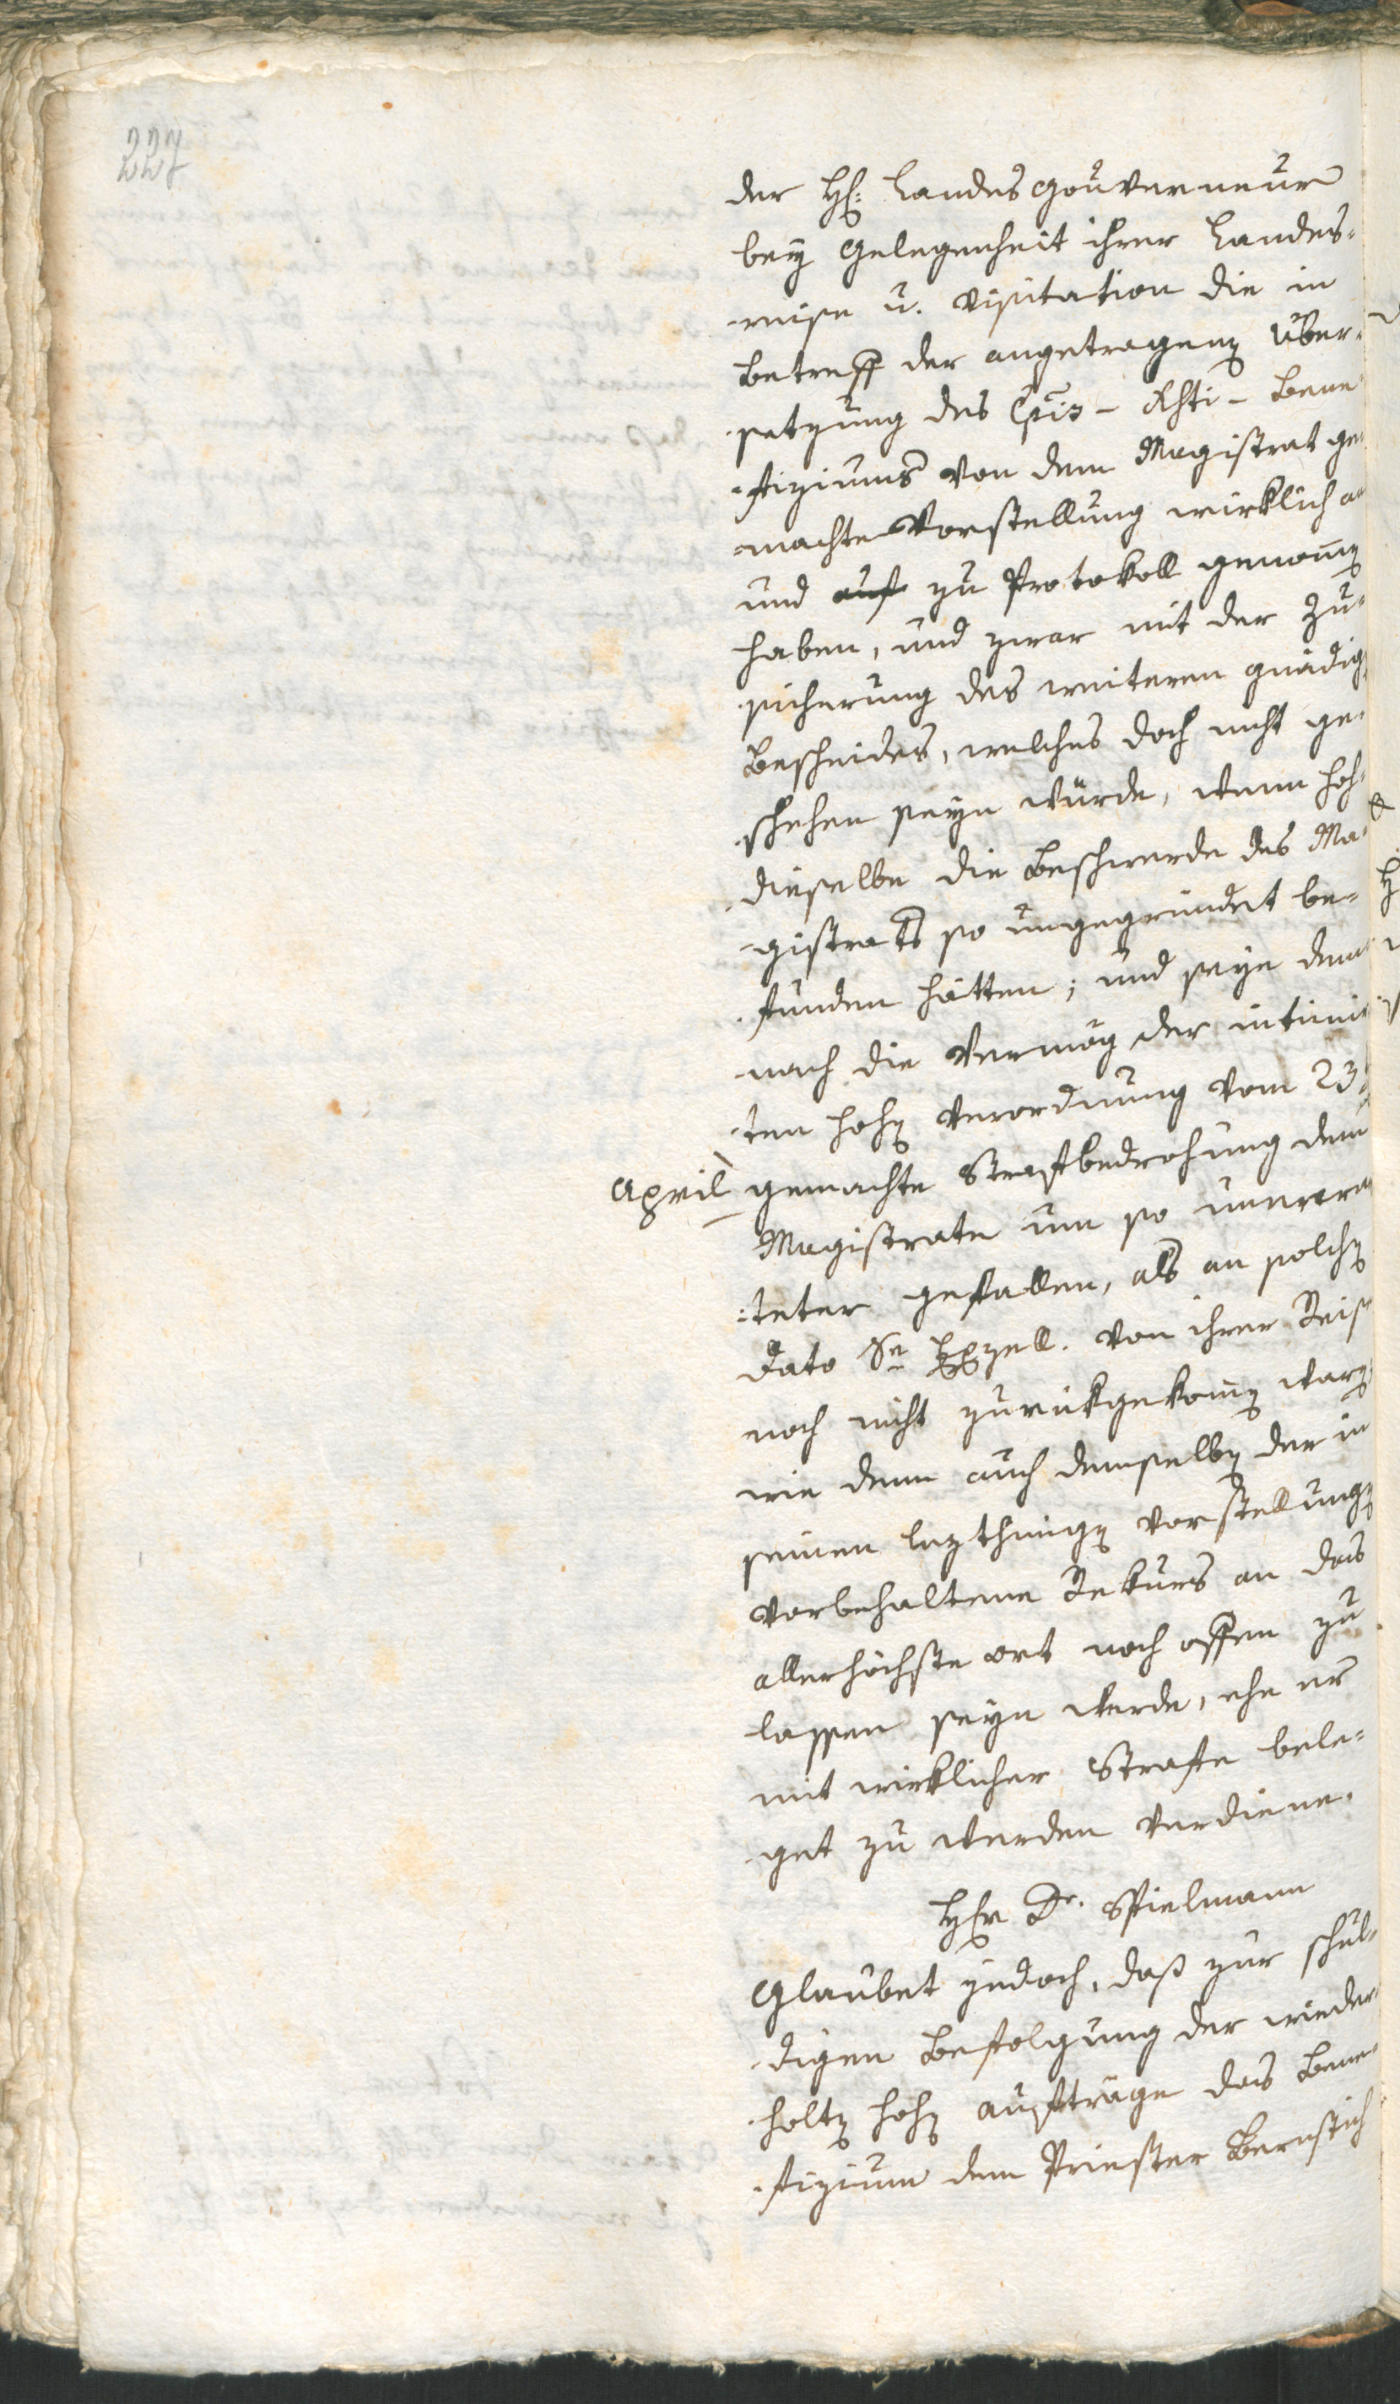 227
der H: Landesgouverneur
bey Gelegenheit ihrer Landes-
-reise u. Visitation die in
Betreff der angetragenen Über-
-setzung des Corporis-Christi-Bene
-fiziums von dem Magistrat ge
-machte Vorstellung wirklich an
und auf zu Protokoll genomen
haben, und zwar mit der Zu-
-sicherung des weiteren gnädig
Bescheides, welches doch nicht ge-
-schehen seyn würde, wenn hoch-
-dieselbe die Beschwerde des Ma-
-gistrats so ungegründet be-
-funden hätten; und seye dem
-nach die Vermög der intimir
-ten hohen Verordnung vom 23t
April gemachte Strafbedrohung dem
Magistrate um so unerwar
-teter gefallen, als an solchen
Dato Se Exzell. von ihrer Reise
noch nicht zurükgekomen waren
wie denn auch demselben der in
seinen lezthinigen Vorstellungen
vorbehaltene Rekurs an das
allerhöchste ort noch offen zu
lassen seyn werde, ehe er
mit wirklicher Strafe bele-
-get zu werden verdiene.
Herr Dr. Spielmann
Glaubet jedoch, daß zur schul-
-digen Befolgung der wieder-
-holten hohen aufträge das Bene-
-fizium dem Priester Bernstich